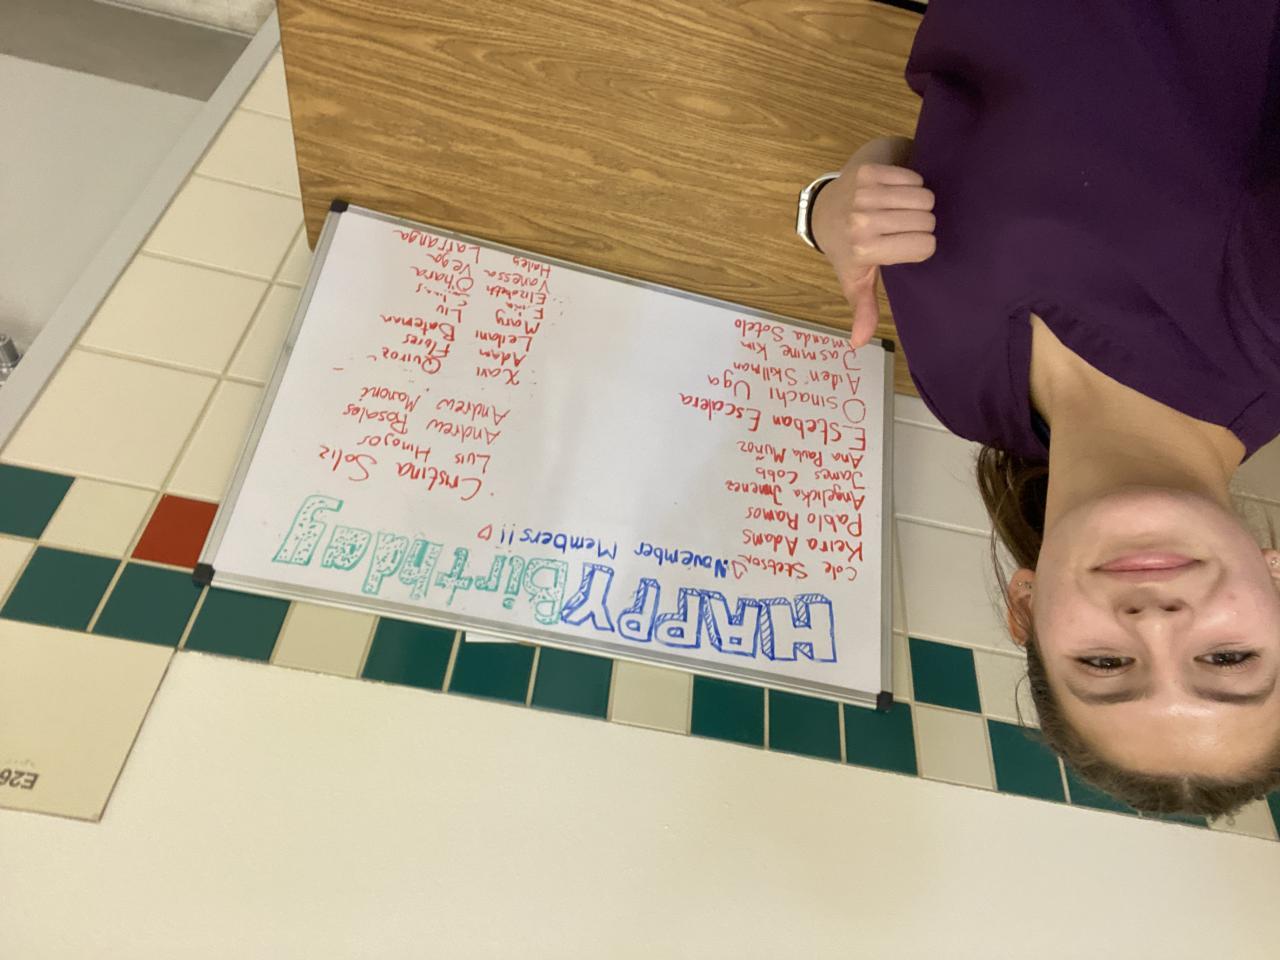 HAPPY Birthday
November Members!! ♡
Cole Stetson ♡
Keira Adams
Pablo Ramos
Angelicka Jimenez
James Cobb
Ana Paula Muñoz
Esteban Escalera
Osinachi Uga
Aiden Skillman
Jasmine Kim
Amanda Sotelo
Cristina Soliz
Luis Hinojos
Andrew Rosales
Andrew Manoni
Xavi Quiroz
Adam Flores
Leilani Bateman
Mary Liu
Elizabeth Ohara
Vanessa Vega
Hailey Larranga
E26